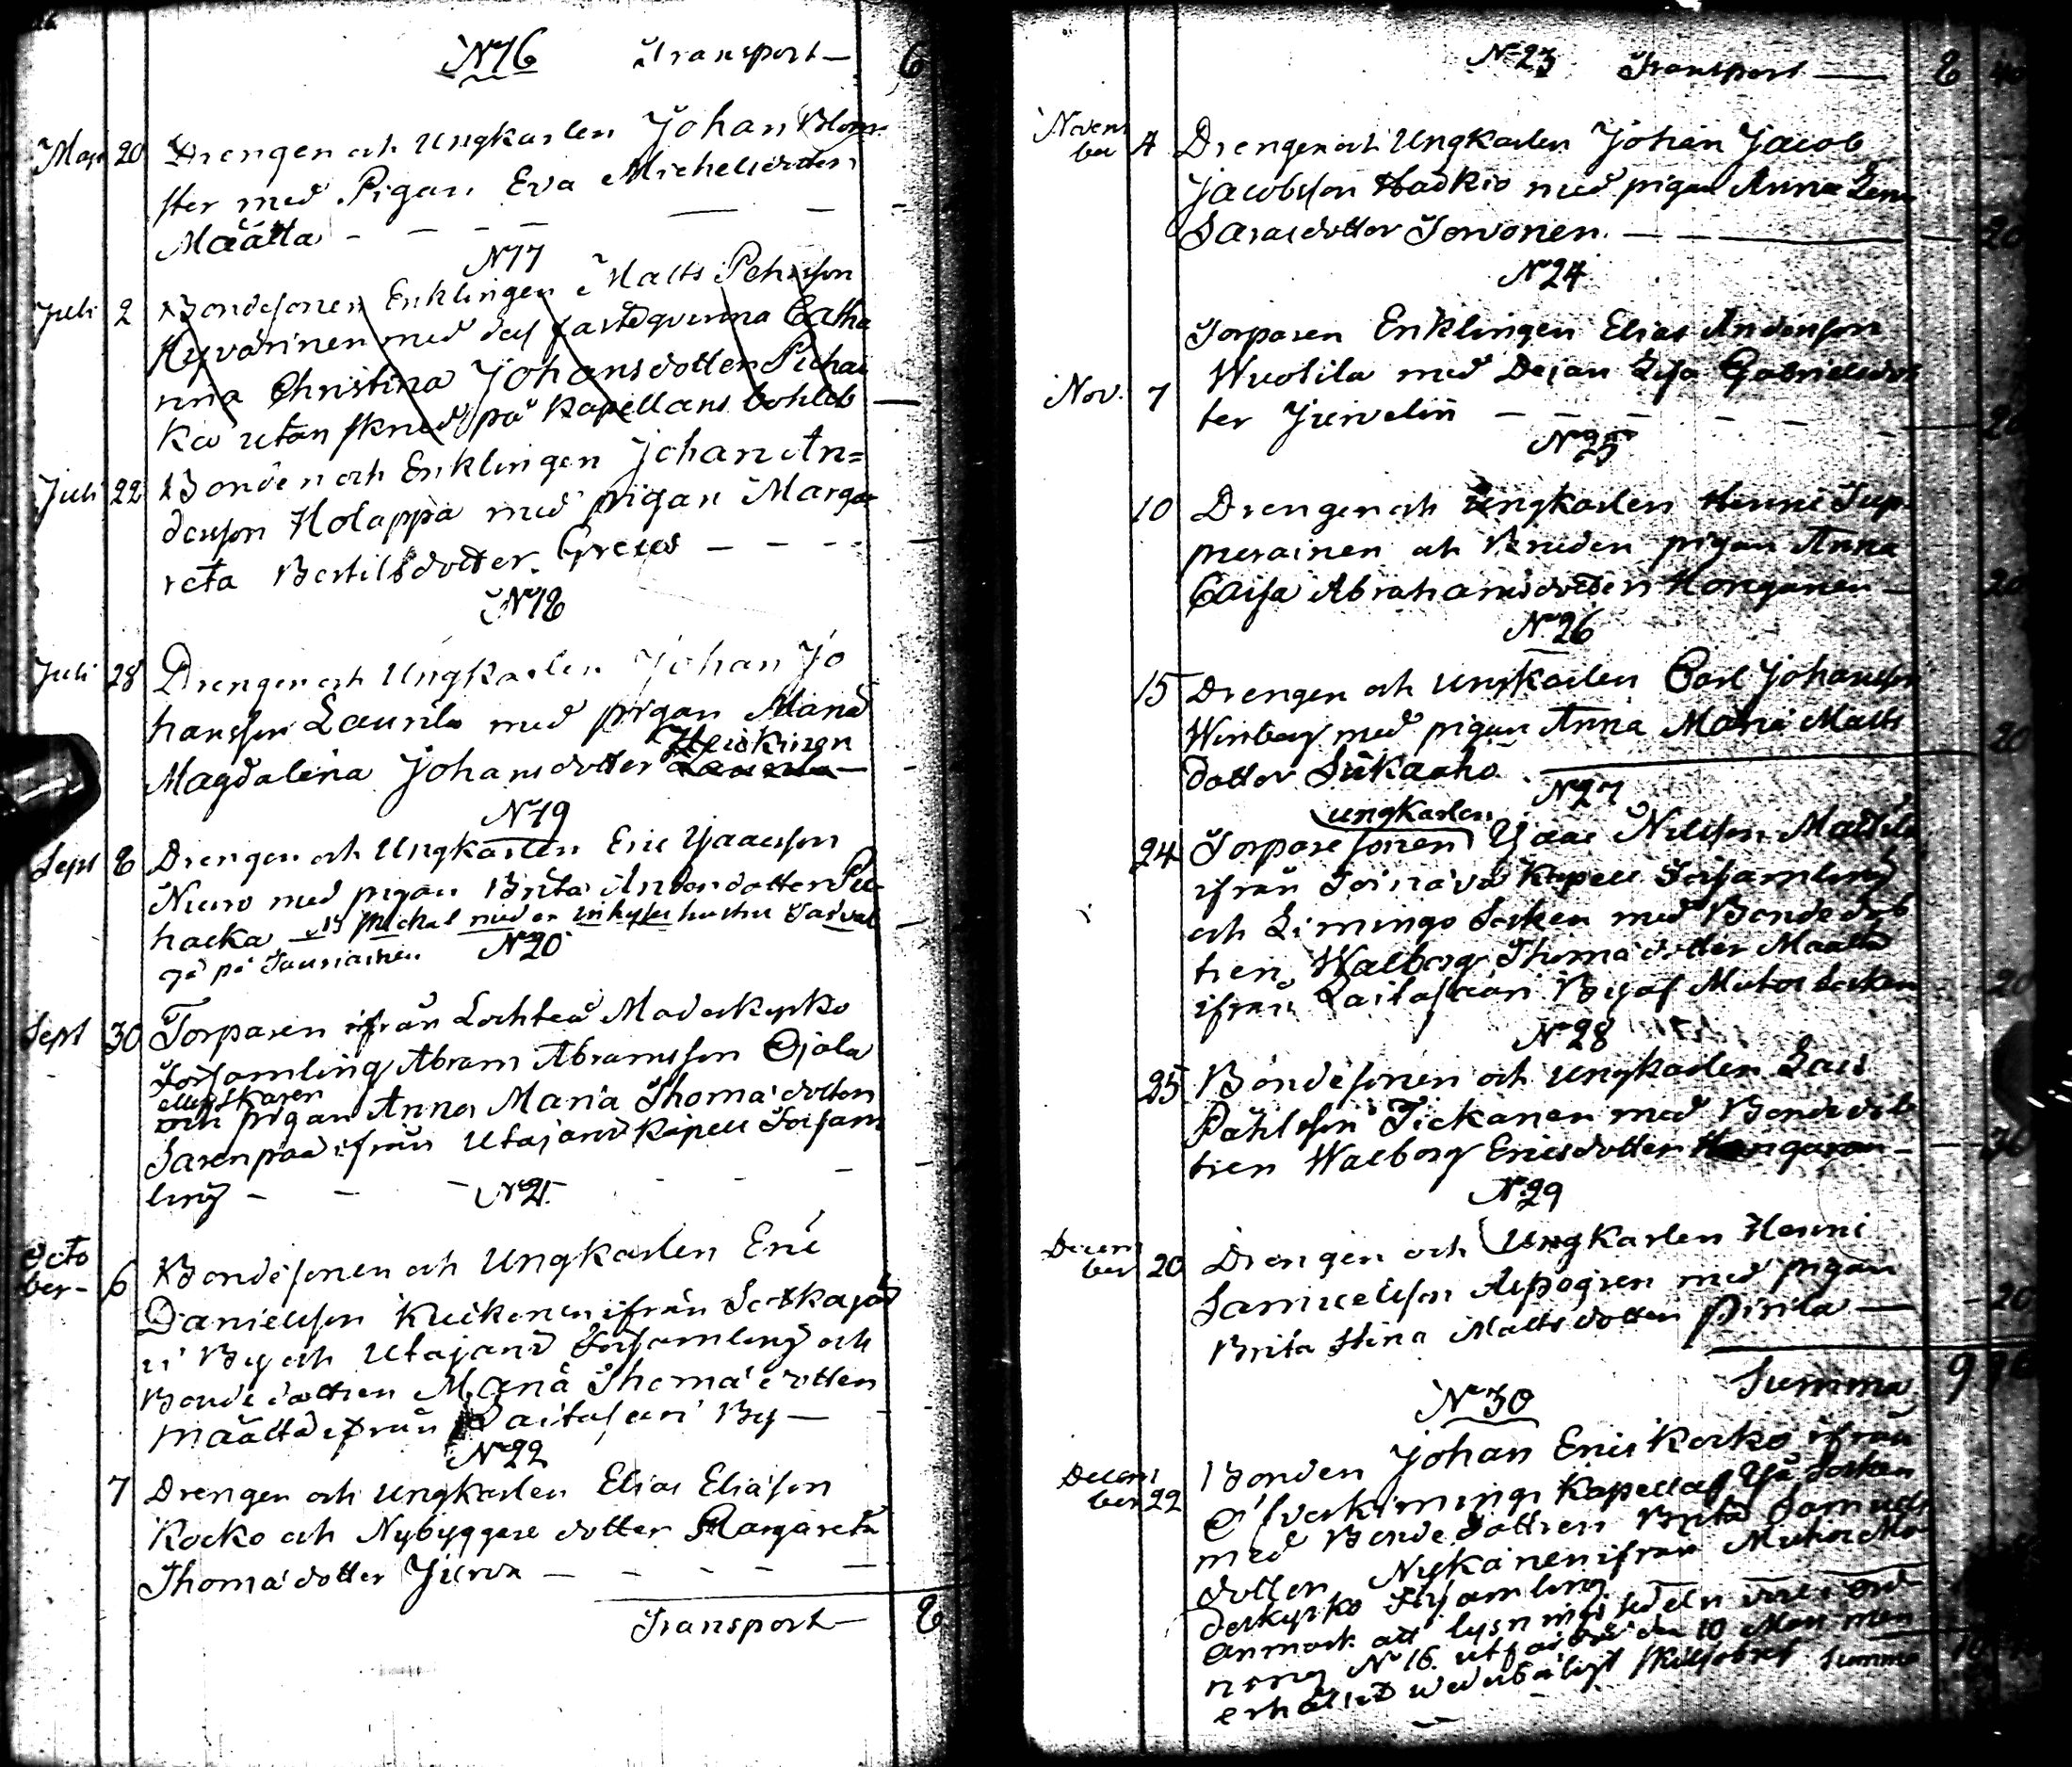 N°16 Transport — 6
Maji 20 Drengen och Ungkarlen Johan Blom-
ster med Pigan Eva Michelsdotter
Määtta
N°17
Juli 2 Bondesonen Enklingen Matts Pehrsson
Hyvärinen med des fästeqvinna Catha
rina Christina Johansdotter Pichai
ka utan skred på Kapellans bohleb
Juli 22 Bonden och Enklingen Johan An=
dersson Holappa med pigan Marga
reta Bertilsdotter Greus
N°18
Juli 28 Drengen och Ungkarlen Johan Jo
hansson Laurila med pigan Maria
Heiskinen
Magdalena Johansdotter Laurila
N°19
Sept 8 Drengen och Ungkarlen Eric Ysaacsson
Niuro med pigan Brita Andersdotter Pel
hacka
gå på Tauriainen N°20
Sept 30 Torparen ifrån Lochteå Moderkyrko
Församling Abram Abramsson Ojala
eller Skaren
och pigan Anna Maria Thomædotter
Sarenpää ifrån Utajärvi Kapell Försam
ling
N°21
Octo
ber 6 Bondesonen och Ungkarlen Eric
Danielsson Kuikenen ifrån Sotkajär
vi By och Utajärvi Församling och
Bondedottren Maria Thomædotter
Määtta ifrån Laitasari By
N°22
7 Drengen och Ungkarlen Elias Eliasson
Kocko och Nybyggare dotter Margareta
Thomædotter Jurva
Transport — 8
N°23 Transport — 8 40
Novem
ber 4 Drengen och Ungkarlen Johan Jacob
Jacobsson Hadkio med pigan Anna Lena
Sarasdotter Torvonen 20
N°24
Torparen Enklingen Elias Andersson
Wuotila med Dejan Lisa Gabrielsdot
Nov. 7 ter Jurvelin 20
N°25
10 Drengen och Ungkarlen Henric Tup
purainen och Bruden pigan Anna
Caisa Abrahamsdotter Honganen 20
N°26
15 Drengen och Ungkarlen Carl Johansson
Winberg med pigan Anna Maria Matts
dotter Siikaaho 20
N°27
ungkarlen
24 Torparesonen Ysaac Nilsson Mattila
ifrån Temmes Kapell Församling
och Limingo Socken med Bondedot
tren Walborg Thomædotter Määtta
ifrån Laitasaari By af Muhos Socken 20
N°28
25 Bondesonen och Ungkarlen Lars
Påhlsson Tickanen med Bondedot
tren Walborg Ericsdotter Honganen 30
N°29
Decem
ber 20 Drengen och Ungkarlen Henric
Samuelsson Aspegren med pigan
Brita Stina Mattsdotter Pirila 20
Summa 9
N°30
Decem
ber 22 Bonden Johan Eric Kocko ifrån
Öfverkimingi Kapell af Yjå Socken
med Bondedottren Brita Samuels
dotter Nykänen ifrån Muhos Mo
derkyrko Församling
Anmärk. att lysnings sedeln
N° 16 utfärdad den 10 Mars men
erhållit wederbörligt Skiljobref Summa